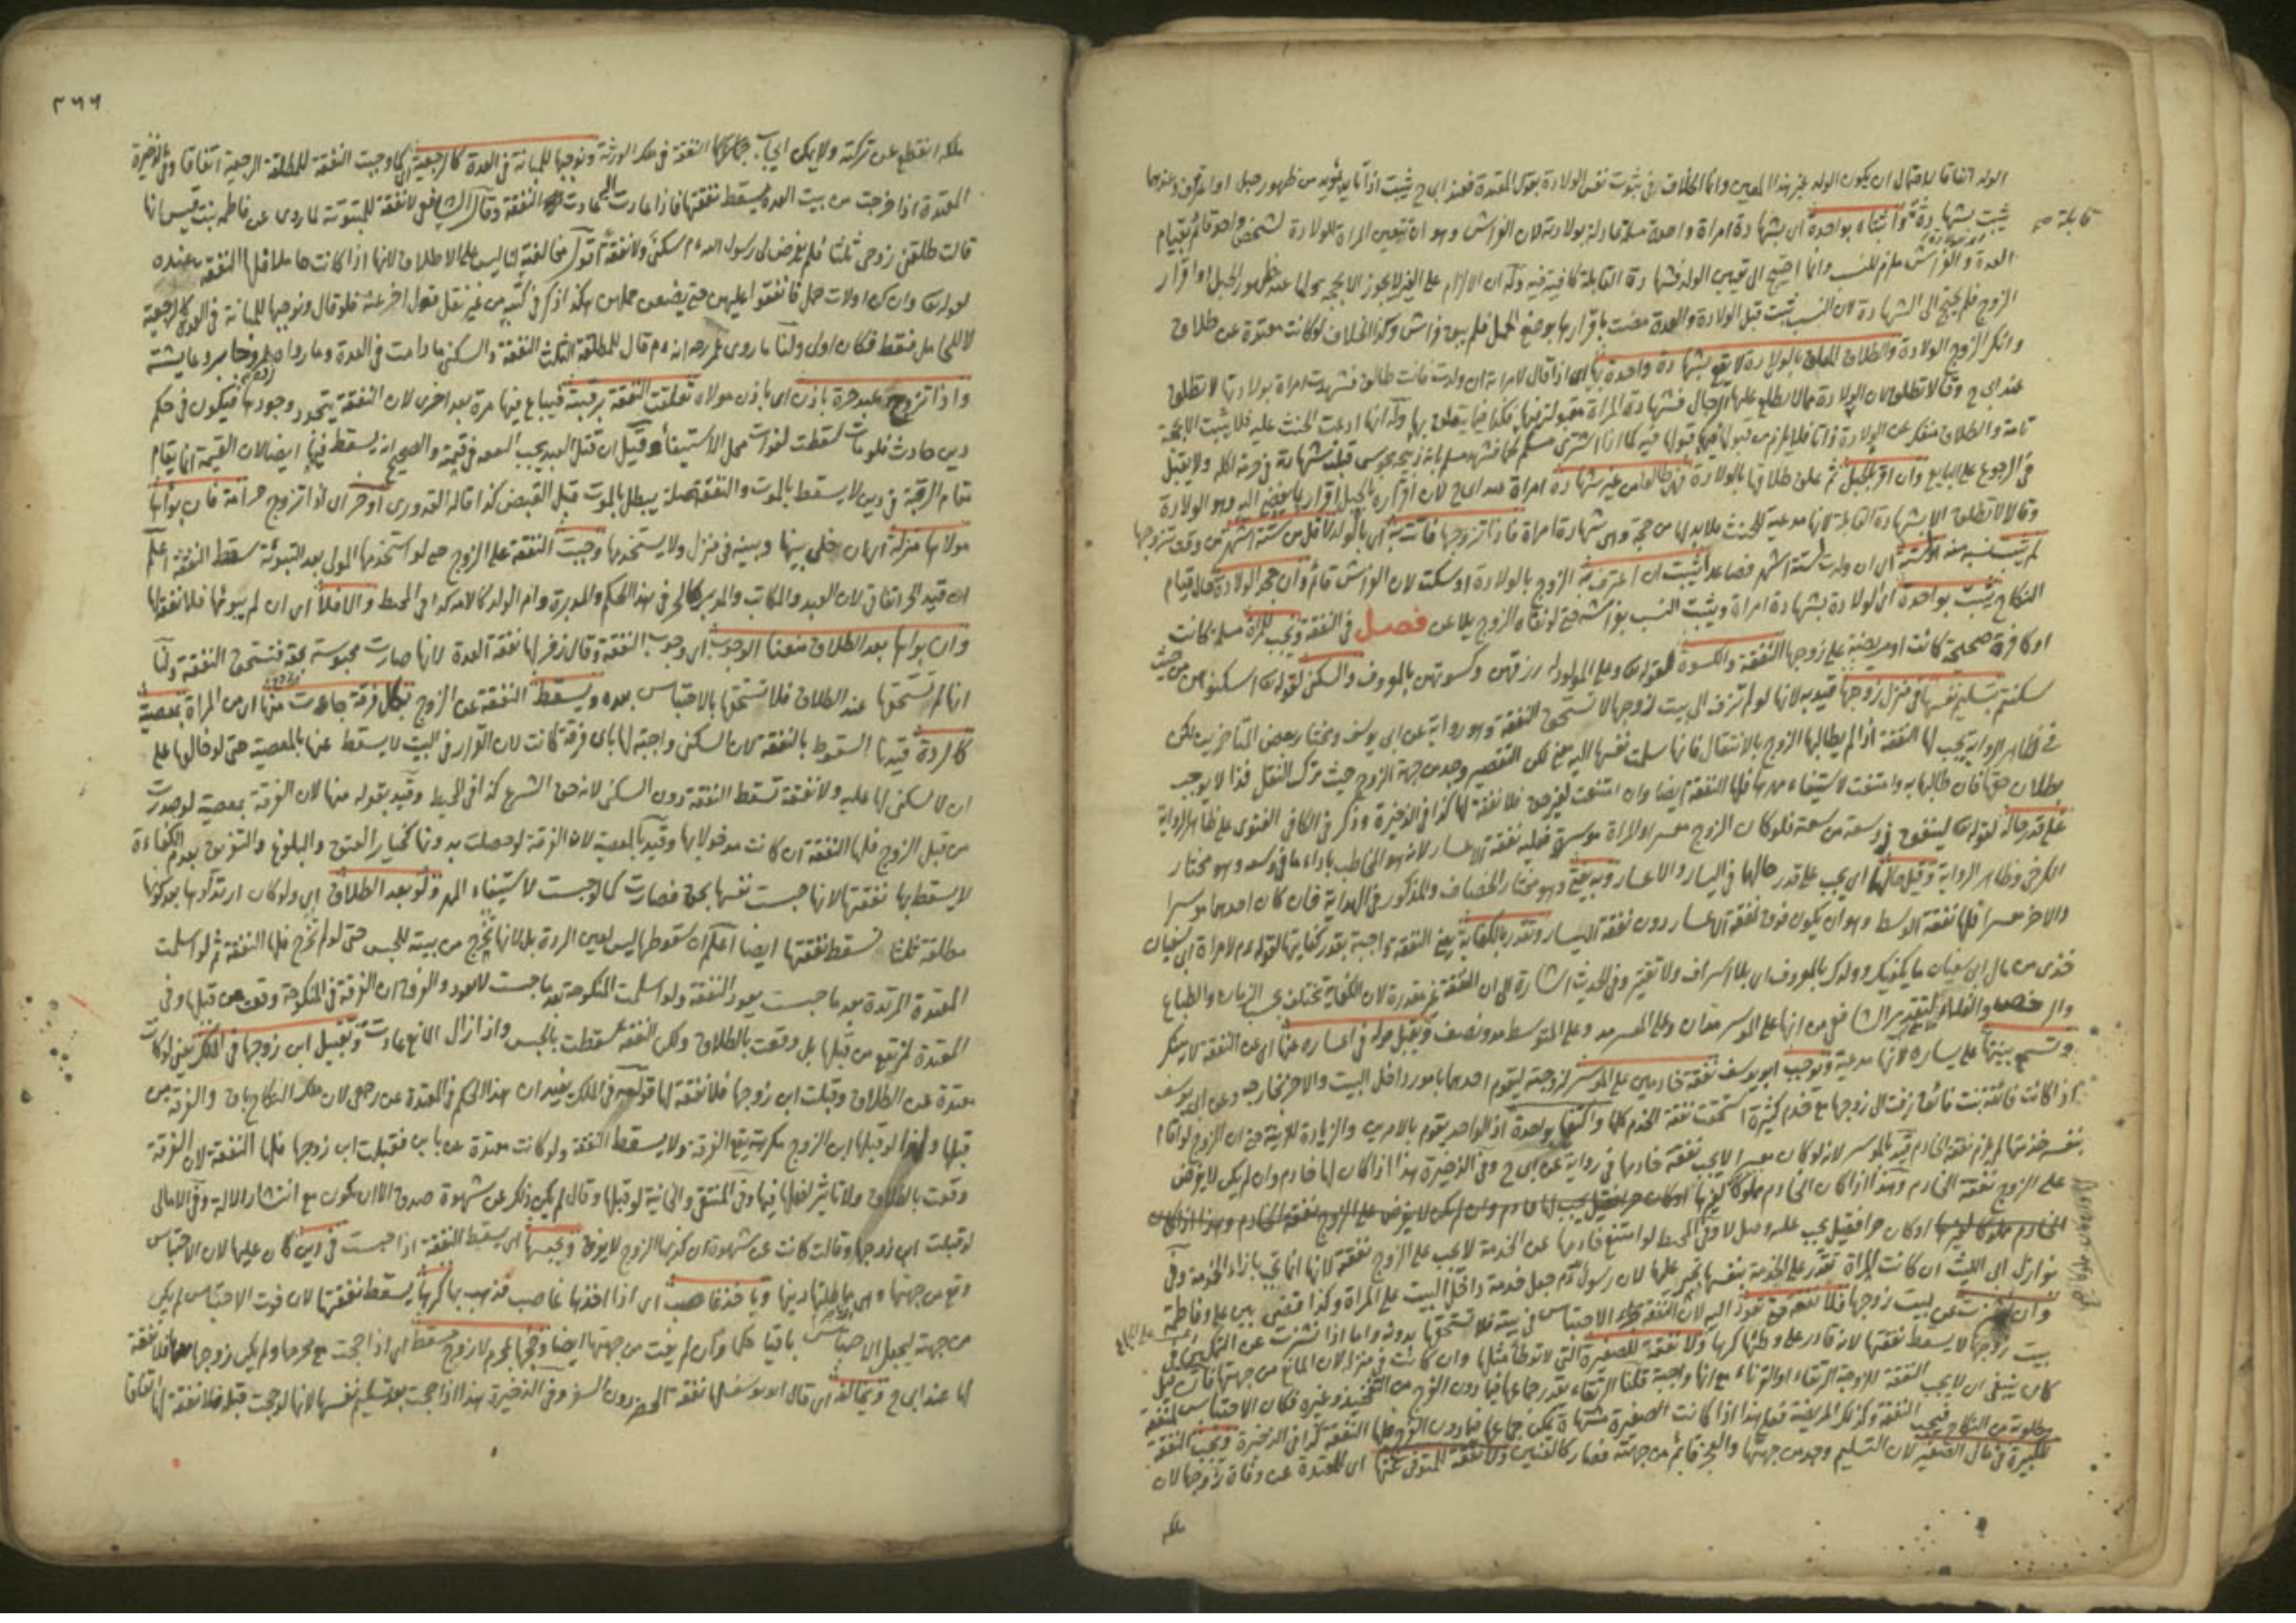 الولد اتفاقا لاحتمال ان يكون الولد غير هذا المعين وانما الخلاف في ثبوت نفس الولادة بقول المعتدة فعند ابى ح يثبت اذا تأيد بمؤيد من ظهور حبل او اعتراف وعندهما
يثبت بشهادة امرأة واحدة مسلمة عادلة بولادته لان الفراش وهو ان تتعين المراة للولادة لشخص واحد قائم بقيام
قابلة صح
العدة والفراش ملزم للنسب وانما احتيج الى تعيين الولد فشهادة القابلة كافية فيه وله ان الالزام على الغير لا يجوز الا بحجة عند ظهور الحبل او اقرار
الزوج فلم يحتج الى الشهادة لان النسب ثبت قبل الولادة والعدة مضت باقرارها بوضع الحمل فلم يبق فراش وكذا الخلاف لو كانت معتدة عن طلاق
وانكر الزوج الولادة والطلاق المعلق بالولادة لا يقع بشهادة واحدة بها اى اذا قال لامراته ان ولدت فانت طالق فشهدت امراة بولادتها لا تطلق
عند ابى ح وقالا تطلق لان الولادة مما لا يطلع عليها الرجال فشهادة المراة مقبولة فيها فكذا فيما يتعلق بها وله انها ادعت الحنث عليه فلا يثبت الا بحجة
تامة والطلاق منفك عن الولادة فلا يلزم من قبولها فيها قبولها فيه كما اذا اشترى مسلم لحما فشهد مسلم بانه ذبيحة مجوسى قبلت شهادته في حرمة اكله ولا يقبل
في الرجوع على البايع وان اقر بالحبل ثم علق طلاقها بالولادة فهى طالق من غير شهادة امراة عند ابى ح لان اقراره بالحبل اقرار بما يفضى اليه وهو الولادة
وقالا لا تطلق الا بشهادة القابلة لانها مدعية للحنث فلا بد لها من حجة وهى شهادة امراة فاذا تزوجها فاتت به اى بالولد لاقل من ستة اشهر من وقت تزوجها
لم يثبت نسبه منه ولستة اى ان ولدت لستة اشهر فصاعدا يثبت ان اعترف به الزوج بالولادة او سكت لان الفراش قائم وان جحد الولادة حال قيام
النكاح يثبت بواحدة اى الولادة بشهادة امراة ويثبت النسب بفراشه حتى لو نفاه الزوج يلاعن فصل في النفقة وتجب للمراة مسلمة كانت
او كافرة صحيحة كانت او مريضة على زوجها النفقة والكسوة لقوله تع وعلى المولود له رزقهن وكسوتهن بالمعروف والسكنى لقوله تع اسكنوهن من حيث
سكنتم بتسليم نفسها في منزل زوجها قيد به لانها لو لم تزف الى بيت زوجها لا تستحق النفقة وهو رواية عن ابى يوسف ومختار بعض المتأخرين لكن
في ظاهر الرواية يجب لها النفقة اذا لم يطالبها الزوج بالانتقال فانها سلمت نفسها اليه معنى لكن التقصير وجد من جهة الزوج حيث ترك النقل فذا لا يوجب
بطلان حقها فان طالبها به وامتنعت لاستيفاء مهرها فلها النفقة ايضا وان امتنعت لغير حق فلا نفقة لها كذا في الذخيرة وذكر في الكافى الفتوى على ظاهر الرواية
على قدر حاله لقوله تع لينفق ذو سعة من سعته فلو كان الزوج معسرا والمراة موسرة فعليه نفقة الاعسار لانه هو المخاطب باداء ما في وسعه وهو مختار
الكرخى وظاهر الرواية وقيل حالهما اى يجب على قدر حالهما في اليسار والاعسار وبه يفتى وهو مختار الخصاف والمذكور في الهداية فان كان احدهما موسرا
والاخر معسرا فلها نفقة الوسط وهو ان يكون فوق نفقة الاعسار دون نفقة اليسار وتقدر بالكفاية يعنى النفقة واجبة بقدر كفايتها لقوله ءم لامراة ابى سفيان
خذى من مال ابى سفيان ما يكفيك وولدك بالمعروف اى بلا اسراف ولا تقتير وفى الحديث اشارة الى ان النفقة غير مقدرة لان الكفاية تختلف بحسب الزمان والطباع
والرخص والغلاء لا بتقدير الشافعى من انها على الموسر مدان وعلى المعسر مد وعلى المتوسط مد ونصف ويقبل قوله في اعساره عنها اى عن النفقة لانه منكر
وتسمع بينتها على يساره لانها مدعية ويوجب ابو يوسف نفقة خادمين على الموسر لزوجته ليقوم احدهما بامور داخل البيت والاخر بخارجه وعن ابى يوسف
اذا كانت فائقة بنت فائق زفت الى زوجها مع خدم كثيرة استحقت نفقة الخدم كلها واكتفيا بواحدة اذ الواحد يقوم بالامرين والزيادة للزينة حتى ان الزوج لو قام
بنفسه بخدمتها لم يلزم نفقة الخادم قيد بالموسر لانه لو كان معسرا لا يجب نفقة خادمها في رواية عن ابى ح وفى الذخيرة هذا اذا كان لها خادم وان لم يكن لا يفرض
على الزوج نفقة الخادم وهذا اذا كان الخادم مملوكا لها
الخادم مملوكا لغيرها او كان حرا فقيل يجب عليه وقيل لا وفى المحيط لو امتنع خادمها عن الخدمة لا يجب على الزوج نفقة لانها انما تجب بازاء الخدمة وفى
نوازل ابى الليث ان كانت المراة تقدر على الخدمة بنفسها تجبر عليها لان رسول الله ءم جعل خدمة داخل البيت على المراة وكذا قضى بين على وفاطمة
وان نشزت عن بيت زوجها فلا نفقة حتى تعود اليه لان النفقة جزاء الاحتباس في بيته فلا تستحقها بدونه واما اذا نشزت عن التمكين في
بيت زوجها لا يسقط نفقتها لانه قادر على وطئها كرها ولا نفقة للصغيرة التى لا توطأ مثلها وان كانت في منزله لان المانع من جهتها فان قيل
كان ينبغى ان لا يجب النفقة للزوجة الرتقاء او القرناء مع انها واجبة قلنا الرتقاء يقدر جماعها فيما دون الفرج من التفخيذ وغيره فكان الاحتباس لمنفعة
مطلوبة من النكاح فيجب النفقة وكذلك المريضة فعلى هذا اذا كانت الصغيرة مشتهاة يمكن جماعها فيما دون الفرج فلها النفقة كذا في الذخيرة ويجب النفقة
للكبيرة في مال الصغير لان التسليم وجد من جهتها والعجز قائم من جهته فصار كالعنين ولا نفقة للمتوفى عنها اى للمعتدة عن وفاة زوجها لان
ملكه
٣٦٦
ملكه انقطع عن تركته ولا يمكن ايجاب النفقة في ملك الورثة ونوجبها للمبانة في العدة كالرجعية اى كما وجبت النفقة للمطلقة الرجعية اتفاقا وفى الذخيرة
المعتدة اذا خرجت من بيت العدة يسقط نفقتها فاذا عادت اليه عادت النفقة وقال الشافعى لا نفقة للمبتوتة لما روى عن فاطمة بنت قيس انها
قالت طلقنى زوجى ثلثا فلم يفرض لى رسول الله ءم سكنى ولا نفقة اقول مخالفة الشافعى ليس على الاطلاق لانها اذا كانت حاملا فلها النفقة عنده
لقوله تع وان كن اولات حمل فانفقوا عليهن حتى يضعن حملهن هكذا ذكر في كتبه من غير نقل قول اخر عنه فلو قال ونوجبها للمبانة في العدة كالرجعية
لا للحامل فقط فكان اولى ولنا ما روى عمر رضه انه ءم قال للمطلقة الثلث النفقة والسكنى ما دامت في العدة وما رواه رده عمر وجابر وعايشة
واذا تزوج عبد حرة باذن اى باذن مولاه تعلقت النفقة برقبته فيباع فيها مرة بعد اخرى لان النفقة يتجدد وجوبها فيكون في حكم
دين حادث فلو مات سقطت لفوات محل الاستيفاء وقيل ان قتل العبد يجب النفقة في قيمته والصحيح انه يسقط فيها ايضا لان القيمة انما يقام
مقام الرقبة في دين لا يسقط بالموت والنفقة صلة يبطل بالموت قبل القبض كذا قاله القدورى او حر اى اذا تزوج حر امة فان بوأها
مولاها منزله اى ان خلى بينها وبينه في منزل ولا يستخدمها وجبت النفقة على الزوج حتى لو استخدمها المولى بعد التبوئة سقط النفقة اعلم
ان قيد الحر اتفاقى لان العبد والمكاتب والمدبر كالحر في هذا الحكم والمدبرة وام الولد كالامة كذا في المحيط والا فلا اى ان لم يبوئها فلا نفقة لها
وان بوأها بعد الطلاق منعنا الوجوب اى وجوب النفقة وقال زفر لها نفقة العدة لانها صارت محبوسة بحقه فتستحق النفقة ولنا
انها لم تستحقها عند الطلاق فلا تستحقها بالاحتباس بعده ويسقط النفقة عن الزوج بكل فرقة جاءت منها اى من المراة بمعصية
كالردة قيدنا السقوط بالنفقة لان السكنى واجبة لها باى فرقة كانت لان القرار في البيت لا يسقط عنها بالمعصية حتى لو خالعها على
ان لا سكنى لها عليه ولا نفقة تسقط النفقة دون السكنى لانه حق الشرع كذا في المحيط وقيد بقوله منها لان الفرقة بمعصية لو صدرت
من قبل الزوج فلها النفقة ان كانت مدخولا بها وقيد بالمعصية لان الفرقة لو حصلت بدونها كخيار العتق والبلوغ والتفريق بعدم الكفاءة
لا يسقط بها نفقتها لانها حبست نفسها بحق فصارت كما لو حبست لاستيفاء المهر ولو بعد الطلاق اى ولو كان ارتدادها بعد كونها
مطلقة ثلثا تسقط نفقتها ايضا اعلم ان سقوطها ليس لعين الردة بل لانها تخرج من بيته للحبس حتى لو لم تخرج فلها النفقة ثم لو اسلمت
المعتدة المرتدة بعد ما حبست يعود النفقة ولو اسلمت المنكوحة بعد ما حبست لا تعود والفرق ان الفرقة في المنكوحة وقعت من قبلها وفى
المعتدة لم تقع من قبلها بل وقعت بالطلاق ولكن النفقة سقطت بالحبس واذا زال المانع عادت وبتقبيل ابن زوجها في الملك يعنى لو كانت
معتدة عن الطلاق وقبلت ابن زوجها فلا نفقة لها قوله في الملك يفيد ان هذا الحكم في المعتدة عن رجعى لان ملك النكاح باق والفرقة من
قبلها ولهذا لو قبلها ابن الزوج مكرهة يقع الفرقة ولا يسقط النفقة ولو كانت معتدة عن باين فقبلت ابن زوجها فلها النفقة لان الفرقة
وقعت بالطلاق ولا تأثير لفعلها فيها وفى المنتقى والخانية لو قبلها وقال لم يكن ذلك عن شهوة صدق الا ان يكون مع انتشار الالة وفى الامالى
لو قبلت ابن زوجها وقالت كانت عن شهوة ان كذبها الزوج لا يفرق وبحبسها اى يسقط النفقة اذا حبست في دين كان عليها لان الاحتباس
وقع من جهتها وهى مماطلتها دينها وباخذ غاصب اى اذا اخذها غاصب فذهب بها كرها يسقط نفقتها لان فوت الاحتباس لم يكن
من جهته ليجعل الاحتباس باقيا حكما وان لم يفت من جهتها ايضا وحجها بمحرم لا زوج مسقط اى اذا حجت مع محرمها ولم يكن زوجها معها فلا نفقة
لها عند ابى ح ويخالفه اى قال ابو يوسف لها نفقة الحضر دون السفر وفى الذخيرة هذا اذا حجت بعد تسليم نفسها لانها لو حجت قبله فلا نفقة لها اتفاقا